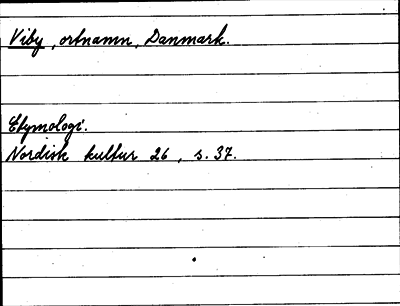 Viby, ortnamn, Danmark.
Etymologi.
Nordisk kultur 26, s. 37.